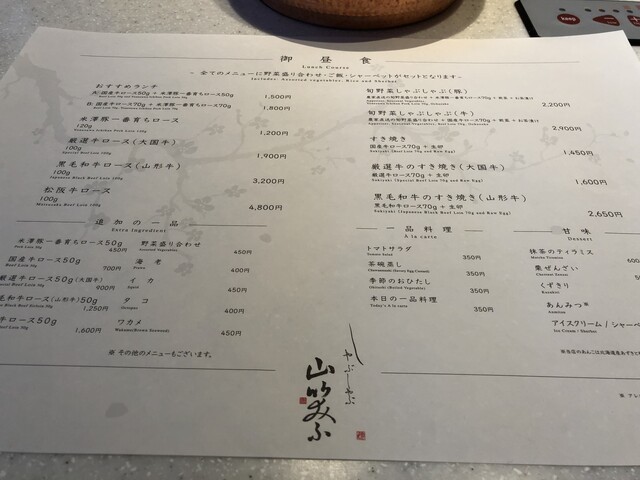 御昼食
Lunch Course
~ 全てのメニューに野菜盛り合わせ・ご飯・シャーベットがセットになります ~
Includes: Assorted vegetables, Rice and Sherbet
おすすめランチ
A: 国産牛ロース50g + 米澤豚一番育ちロース50g 1,500円
B: 国産牛ロース70g + 米澤豚一番育ちロース70g 1,800円
米澤豚一番育ちロース
120g 1,200円
厳選牛ロース(大国牛)
100g 1,900円
黒毛和牛ロース(山形牛)
100g 3,200円
松阪牛ロース
100g 4,800円
追加の一品
Extra Ingredient
米澤豚一番育ちロース50g 450円
国産牛ロース50g 700円
厳選牛ロース50g(大国牛) 900円
毛和牛ロース(山形牛)50g 1,250円
牛ロース50g 1,600円
野菜盛り合わせ 450円
海老 400円
イカ 450円
タコ 400円
ワカメ 450円
※ その他のメニューもございます。
旬野菜しゃぶしゃぶ(豚) 2,200円
旬野菜しゃぶしゃぶ(牛) 2,900円
すき焼き
国産牛ロース70g + 生卵 1,450円
厳選牛のすき焼き(大国牛)
厳選牛ロース70g + 生卵 1,600円
黒毛和牛のすき焼き(山形牛)
黒毛和牛ロース70g + 生卵 2,650円
一品料理
À la carte
トマトサラダ 350円
茶碗蒸し 350円
季節のおひたし 350円
本日の一品料理 350円
甘味
Dessert
抹茶のティラミス 600
栗ぜんざい
くずきり
あんみつ※
アイスクリーム / シャーベ
しゃぶしゃぶ
山笑ふ